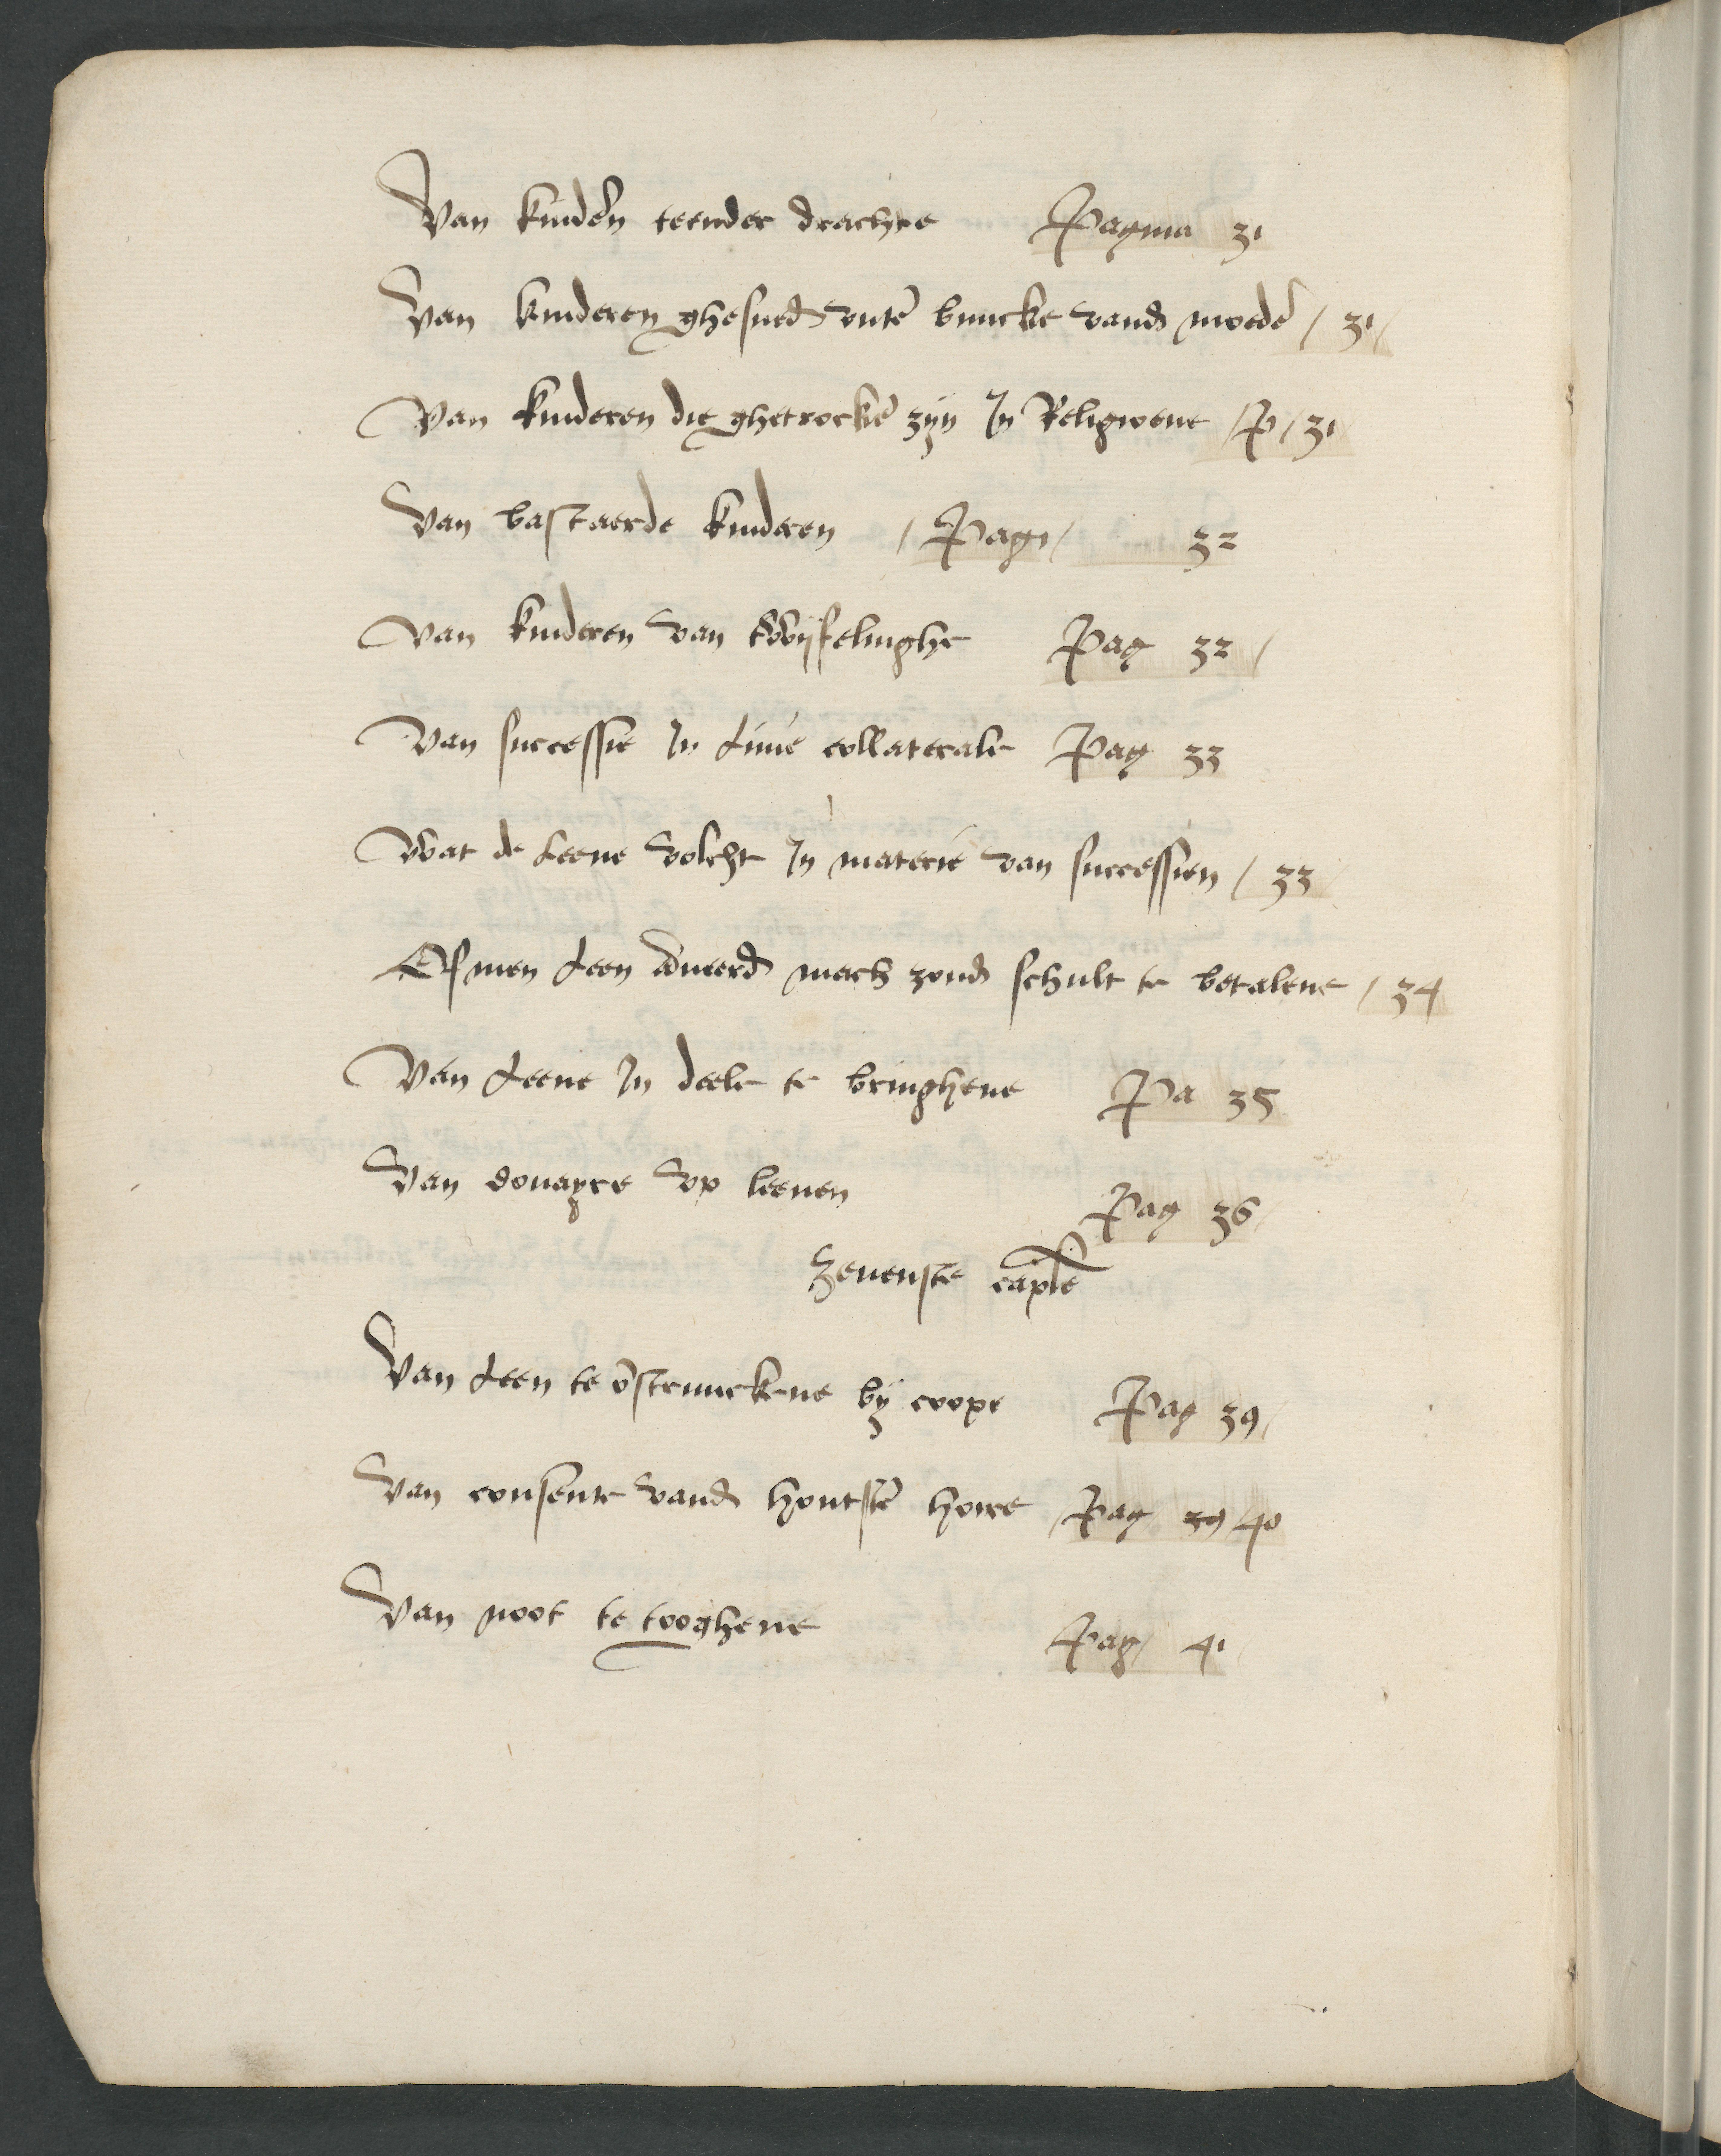 Van kinderen teender drachte Pagina 31
Van kinderen ghesned vuten buucke vand moeder / 31 /
Van kinderen die ghetrocken zijn In Religioene / P / 31
Van bastaerde kinderen / Pag / 32
Van kinderen van twijfelinghe Pag 32 /
Van successie In Linie collaterale Pag 33
Wat de Leene volcht In materie van successien / 33
Of men Leen anveerd mach zond schult te betalene / 34
Van Leene In deele te bringhene Pa 35
Van douayre vp leenen Pag 36
Zevenste caple
Van Leen te vstrucke bij coope Pag 39 /
Van consente vand houtsten hoire Pag 39 / 40
Van noot te tooghene Pag / 41